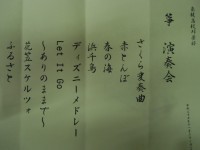 箏 演奏会
さくら変奏曲
赤とんぼ
春の海
浜千鳥
ディズニーメドレー
Let It Go
～ありのままで～
花笠スケルツォ
ふるさと